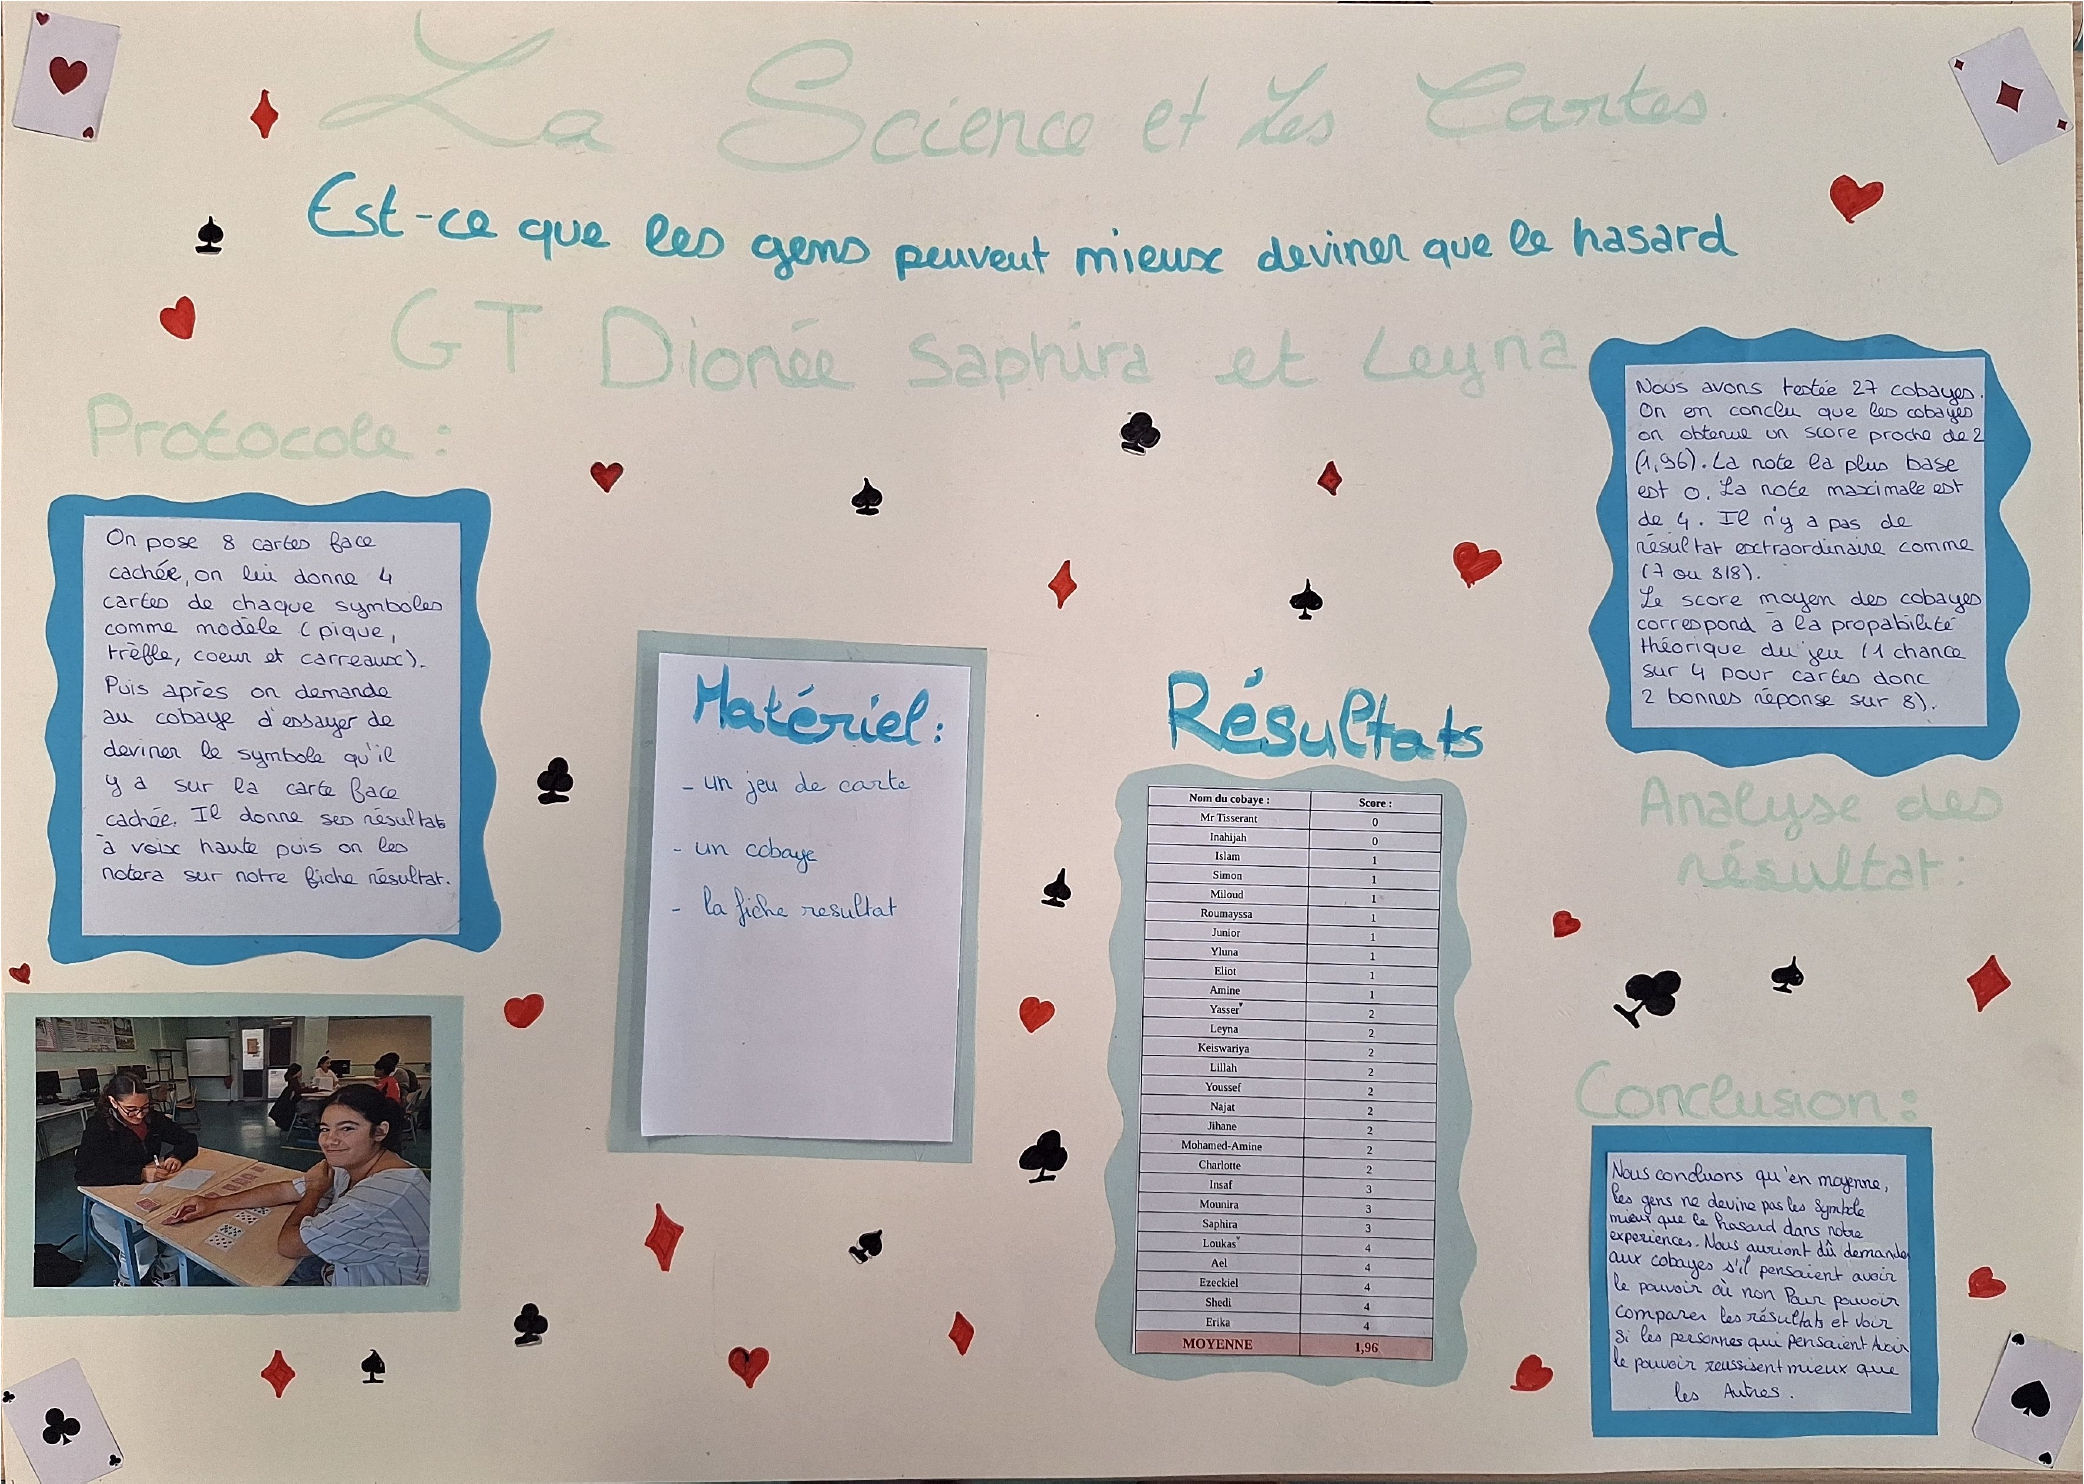 La Science et Les Cartes
Est-ce que les gens peuvent mieux deviner que le hasard
GT Dionée Saphira et Leyna
Protocole :
On pose 8 cartes face
cachée, on lui donne 4
cartes de chaque symboles
comme modèle (pique,
trèfle, coeur et carreaux).
Puis après on demande
au cobaye d'essayer de
deviner le symbole qu'il
y a sur la carte face
cachée. Il donne ses résultats
à voix haute puis on les
notera sur notre fiche résultat.
Matériel :
- un jeu de carte
- un cobaye
- la fiche resultat
Résultats
Nom du cobaye : Score :
Mr Tisserant 0
Inahijah 0
Islam 1
Simon 1
Miloud 1
Roumayssa 1
Junior 1
Yluna 1
Eliot 1
Amine 1
Yasser 2
Leyna 2
Keiswariya 2
Lillah 2
Youssef 2
Najat 2
Jihane 2
Mohamed-Amine 2
Charlotte 2
Insaf 3
Mounira 3
Saphira 3
Loukas 4
Ael 4
Ezeckiel 4
Shedi 4
Erika 4
MOYENNE 1,96
Nous avons testée 27 cobayes.
On en conclu que les cobayes
on obtenue un score proche de 2
(1,96). La note la plus base
est 0. La note maximale est
de 4. Il n'y a pas de
résultat extraordinaire comme
(7 ou 8/8).
Le score moyen des cobayes
correspond à la propabilité
théorique du jeu (1 chance
sur 4 pour cartes donc
2 bonnes réponse sur 8).
Analyse des
résultat :
Conclusion :
Nous concluons qu'en moyenne,
les gens ne devine pas les symbole
mieux que le hasard dans notre
experiences. Nous auriont dû demander
aux cobayes s'il pensaient avoir
le pouvoir où non Pour pouvoir
comparer les résultats et voir
si les personnes qui pensaient Avoir
le pouvoir reussisent mieux que
les Autres.